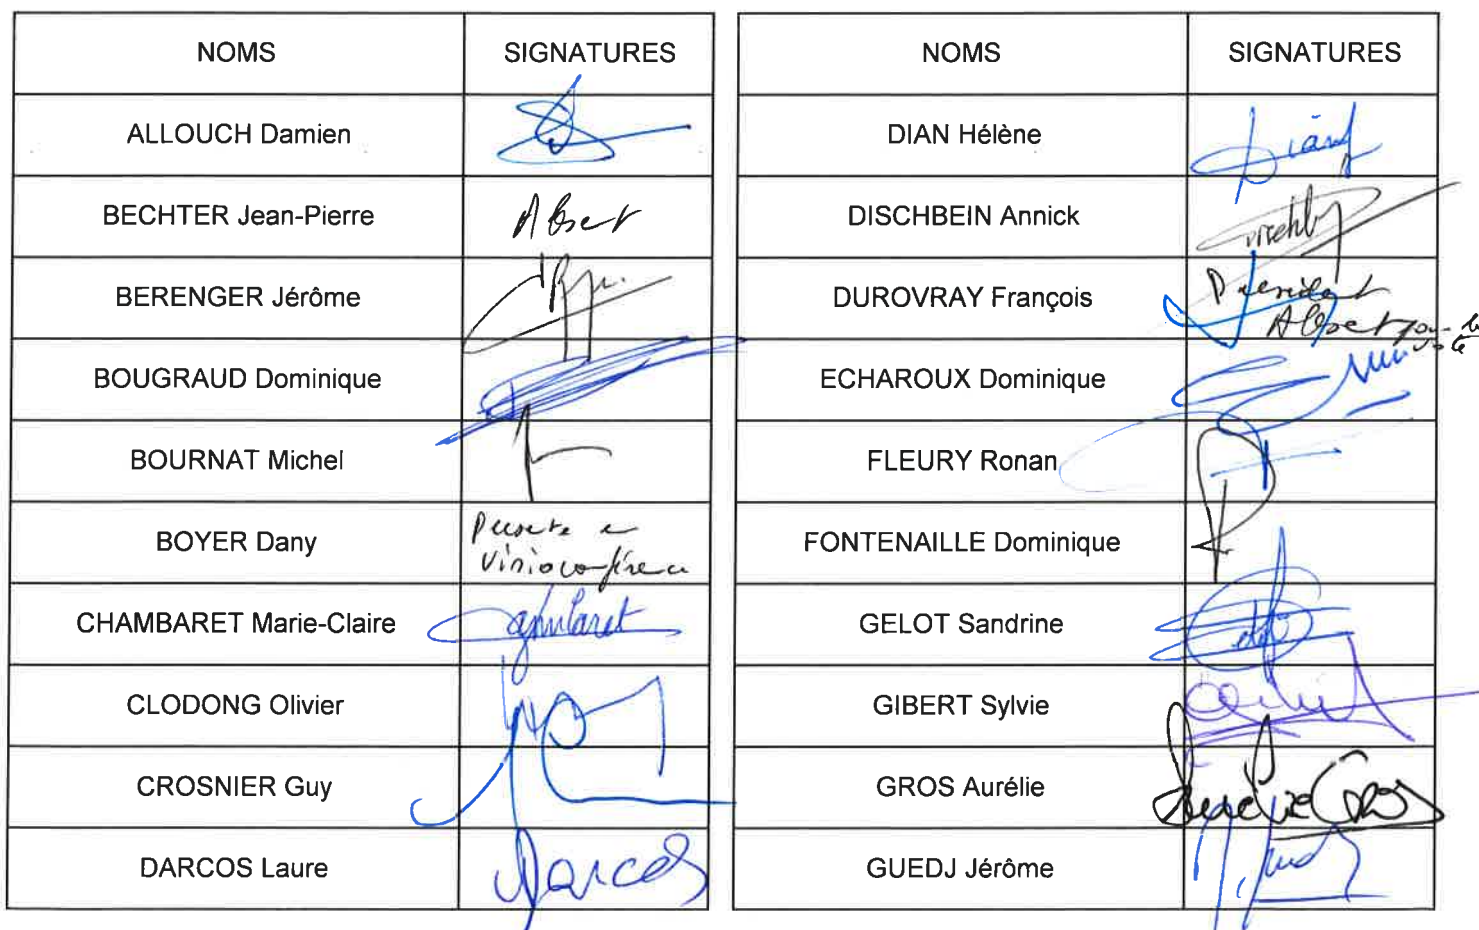 NOMS SIGNATURES
ALLOUCH Damien
BECHTER Jean-Pierre Absent
BERENGER Jérôme
BOUGRAUD Dominique
BOURNAT Michel
BOYER Dany Présente en
visioconférence
CHAMBARET Marie-Claire
CLODONG Olivier
CROSNIER Guy
DARCOS Laure Darcos
NOMS SIGNATURES
DIAN Hélène Dian
DISCHBEIN Annick
DUROVRAY François Président
Absent pour le
vote
ECHAROUX Dominique
FLEURY Ronan
FONTENAILLE Dominique
GELOT Sandrine
GIBERT Sylvie
GROS Aurélie Aurélie Gros
GUEDJ Jérôme